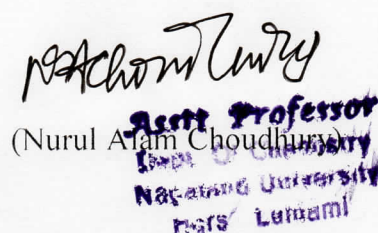 NAChoudhury
(Nurul Alam Choudhury)
Asstt Professor
Dept. Of Chemistry
Nagaland University
Hqrs Lumami